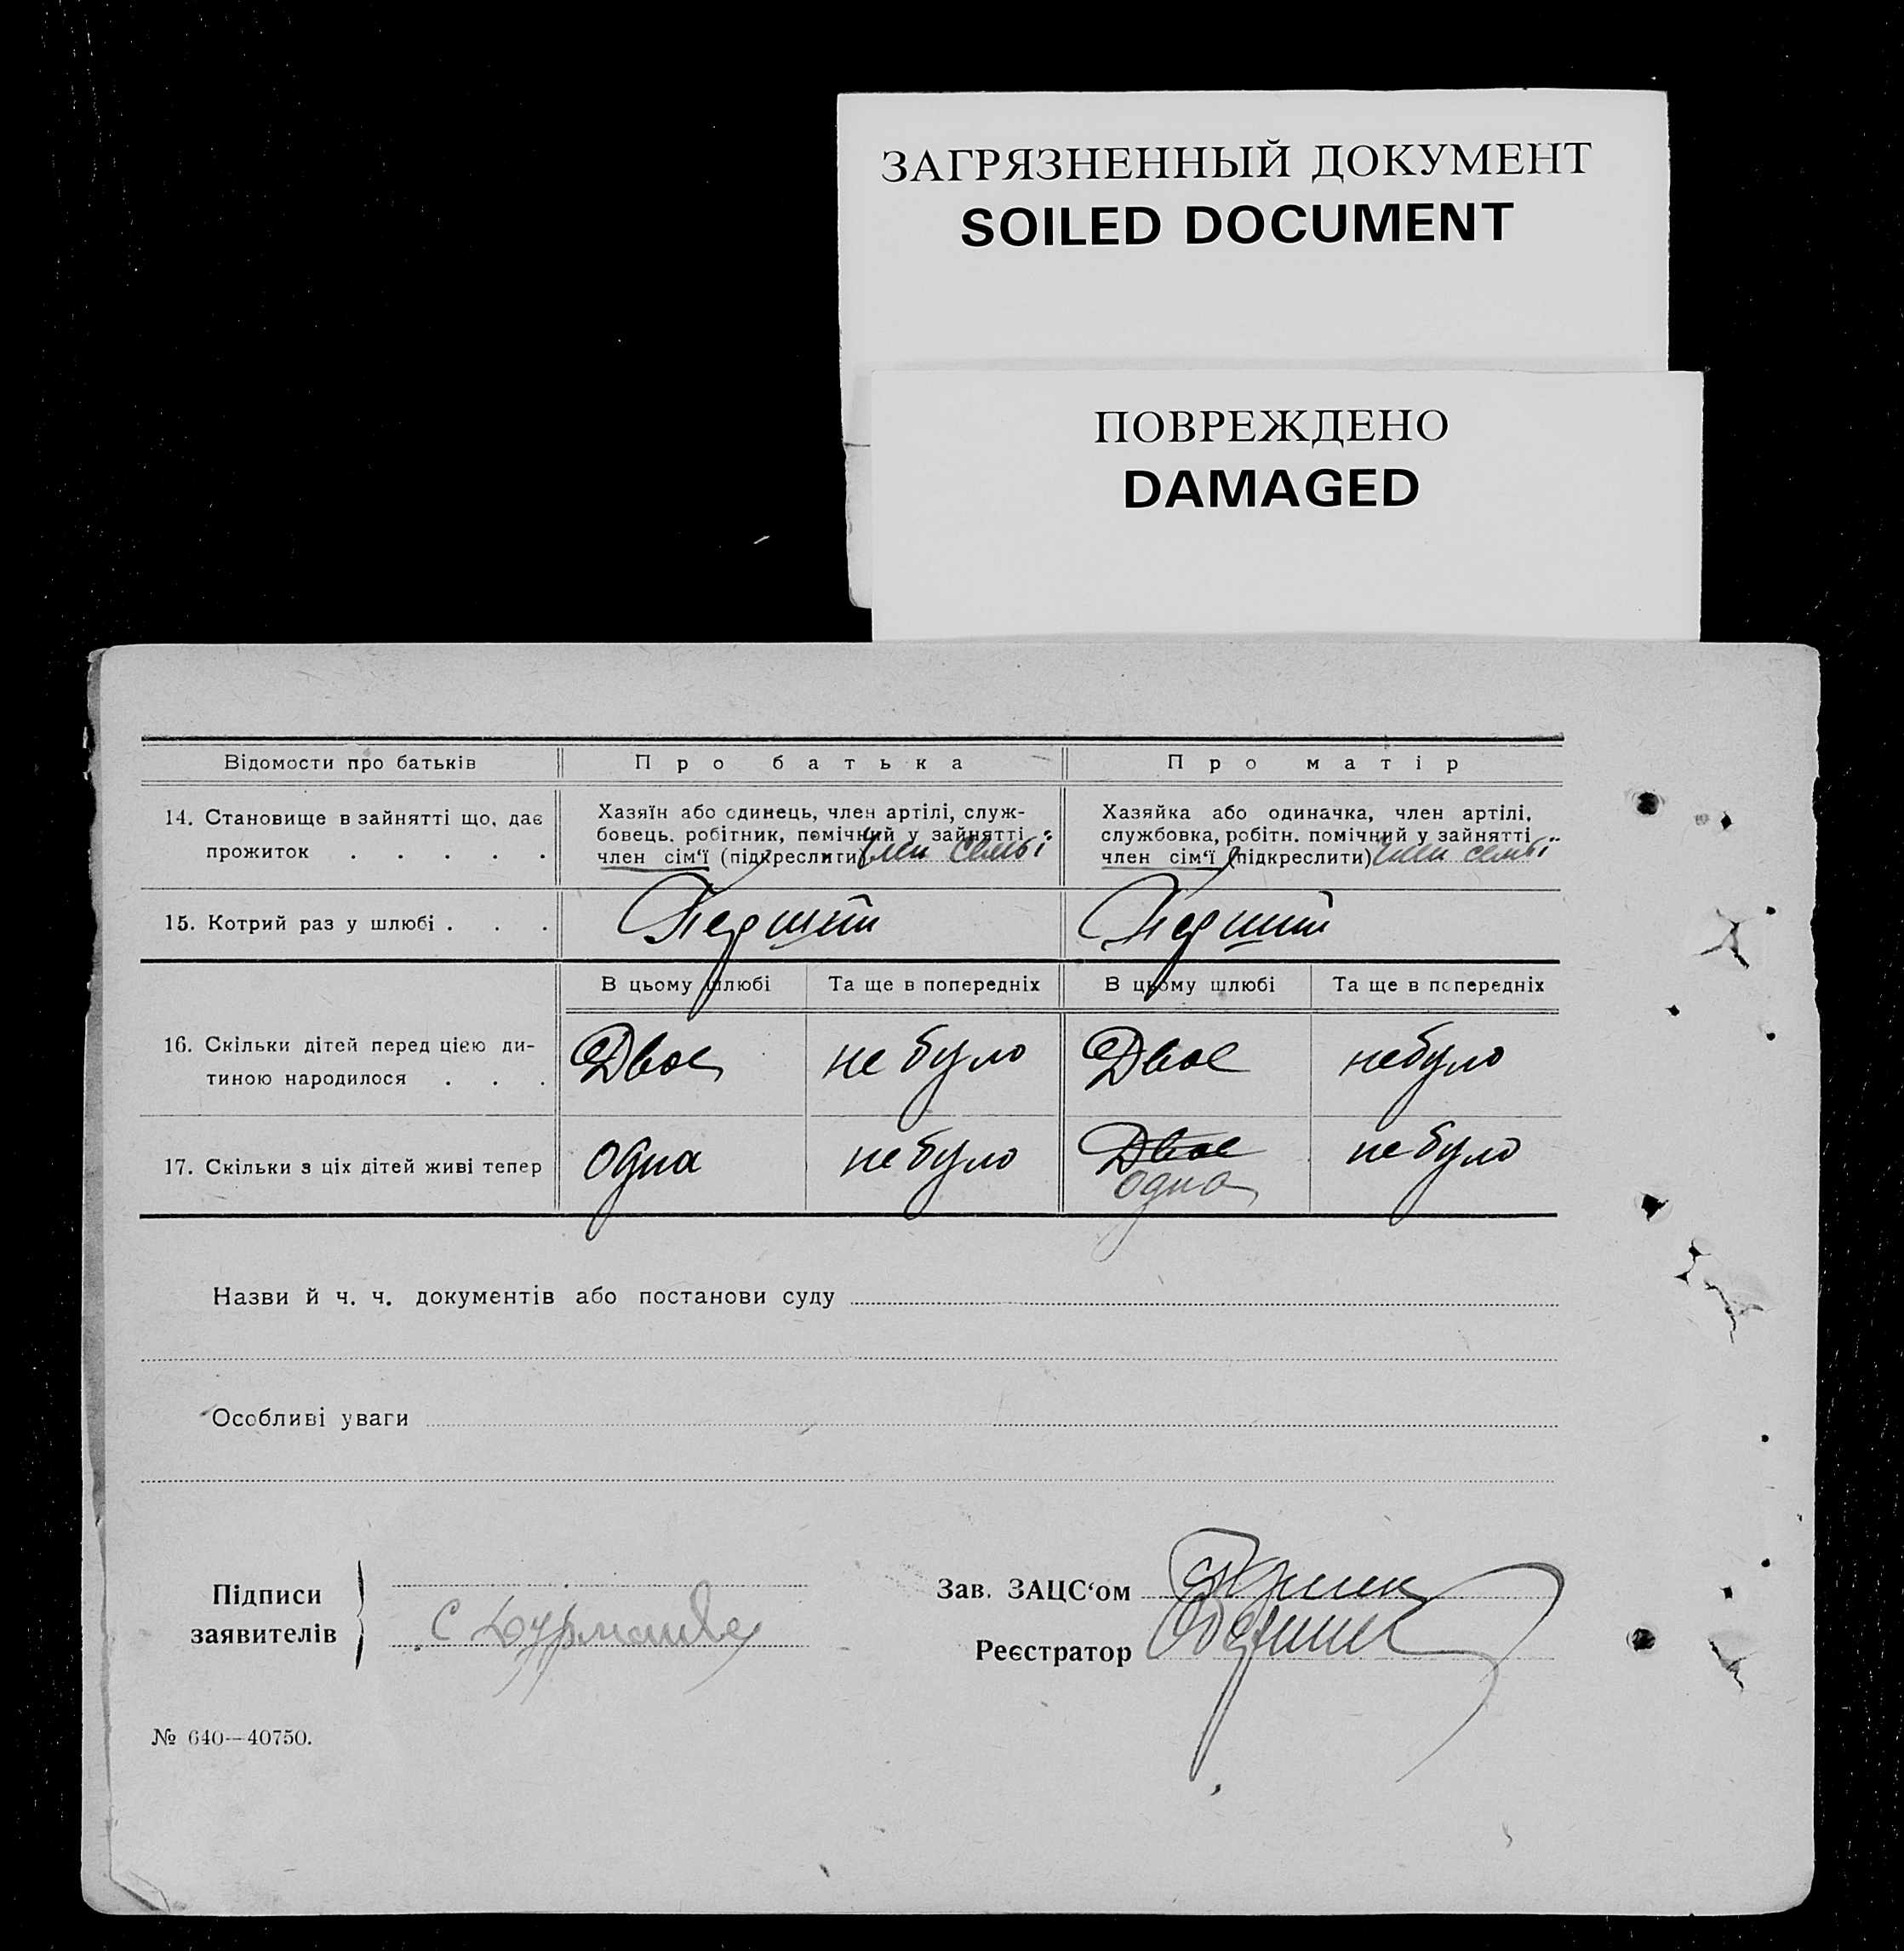 ЗАГРЯЗНЕННЫЙ ДОКУМЕНТ
SOILED DOCUMENT
ПОВРЕЖДЕНО
DAMAGED
Відомости про батьків
Про батька
Про матір
14. Становище в зайнятті що, дає
прожиток . . . . .
Хазяїн або одинець, член артілі, служ-
бовець. робітник, помічний у зайнятті
член сім‘ї (підкреслити) член семьї
Хазяйка або одиначка, член артілі,
службовка, робітн. помічний у зайнятті
член сім‘ї (підкреслити) член семьї
15. Котрий раз у шлюбі . . .
Перший
Перший
В цьому шлюбі
Та ще в попередніх
В цьому шлюбі
Та ще в попередніх
16. Скільки дітей перед цією ди-
тиною народилося . . .
Двое
не було
Двое
небуло
17. Скільки з ціх дітей живі тепер
одна
не було
Двое
одна
не було
Назви й ч. ч. документів або постанови суду
Особливі уваги
Підписи
заявителів
Зав. ЗАЦС‘ом
Реєстратор
№ 640—40750.